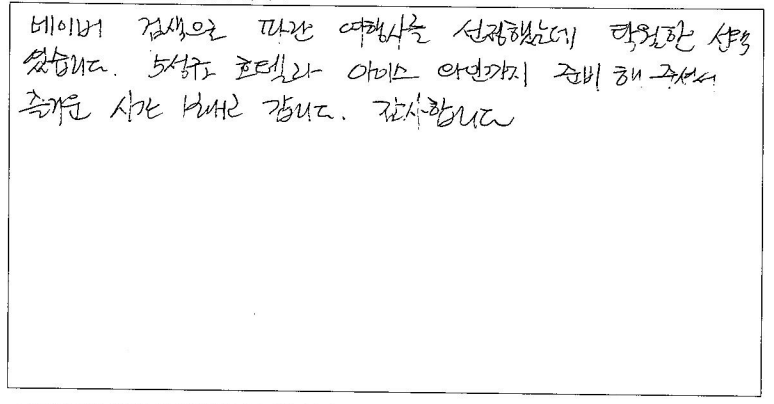 네이버 검색으로 파란 여행사를 선정했는데 탁월한 선택
이었습니다. 5성급 호텔과 아이스 와인까지 준비 해 주셔서
즐거운 시간 보내고 갑니다. 감사합니다